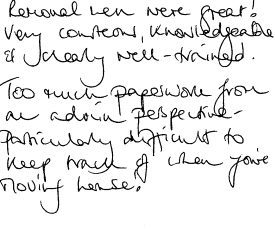 Removal men were great!
Very courteous, knowledgeable
& clearly well-trained.
Too much paperwork from
an admin perspective -
particularly difficult to
keep track of when you're
moving house!